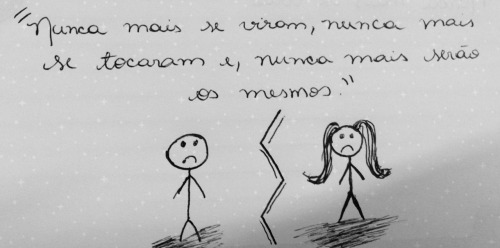 "Nunca mais se viram, nunca mais
se tocaram e, nunca mais serão
os mesmos."